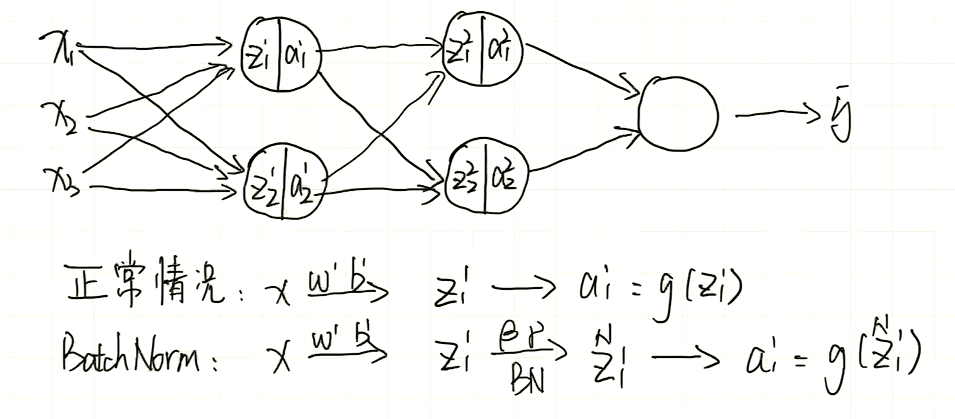 x₁
x₂
x₃
z₁¹ | a₁¹
z₂¹ | a₂¹
z₁² | a₁²
z₂² | a₂²
ŷ
正常情况: x →(w¹ b¹) z₁¹ → a₁¹ = g(z₁¹)
BatchNorm: x →(w¹ b¹) z₁¹ →(β γ / BN) z̃₁¹ → a₁¹ = g(z̃₁¹)